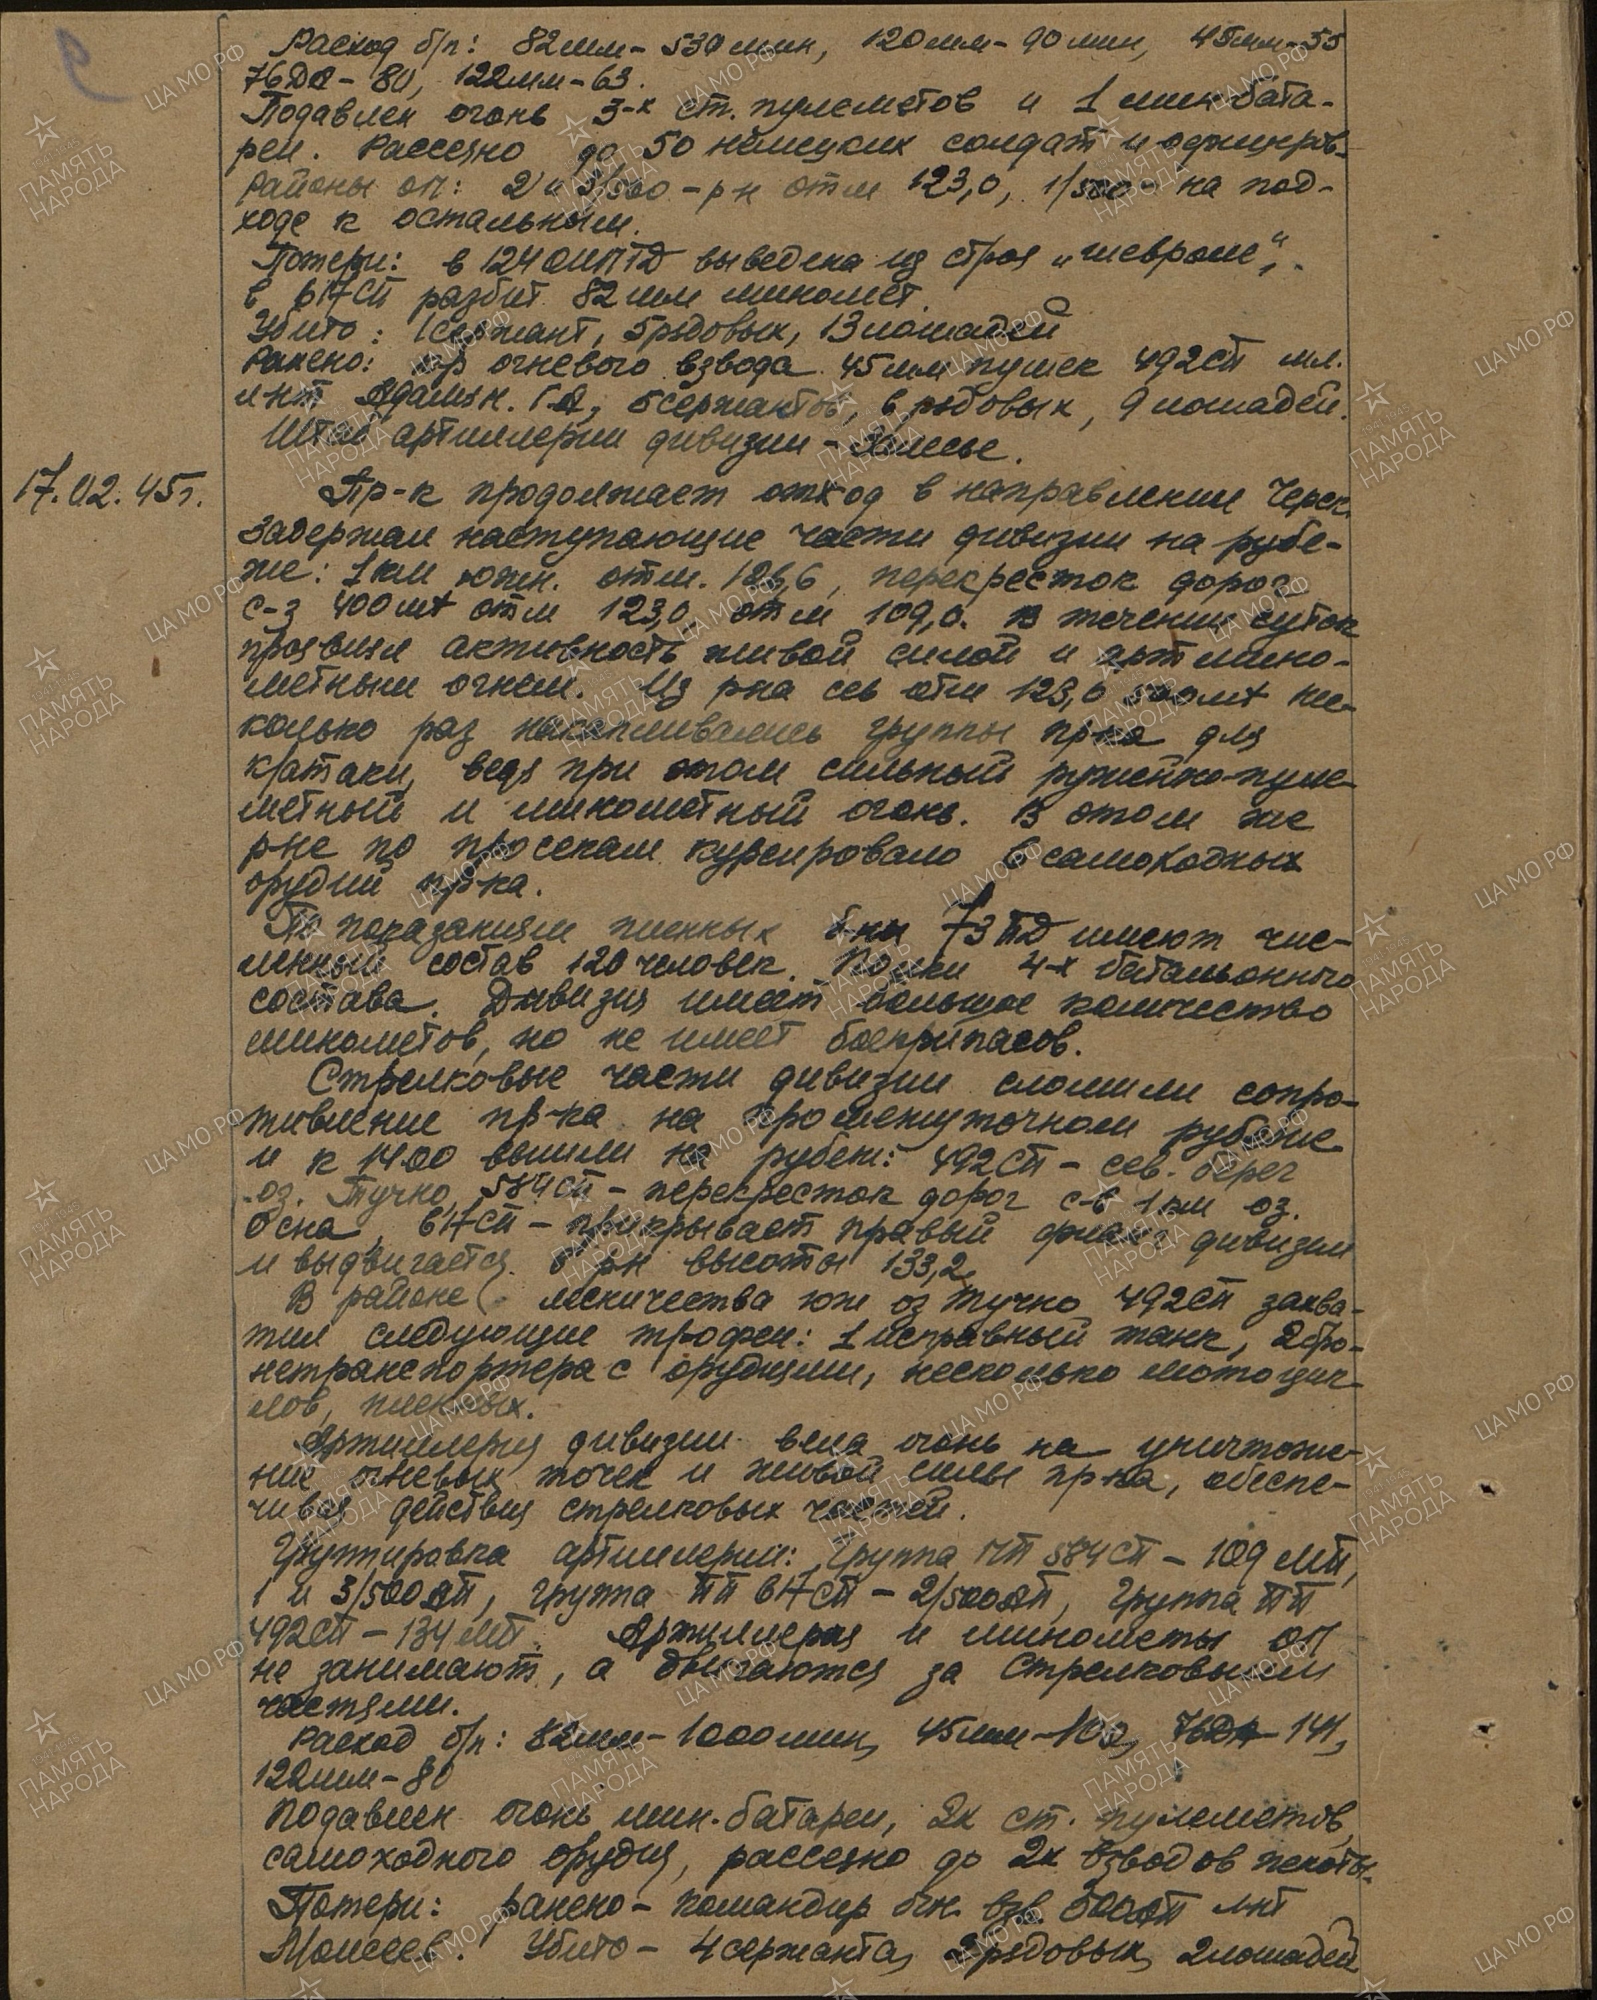 Расход б/п: 82мм - 530 мин, 120мм - 90 мин, 45мм - 55
76ДА - 80, 122мм - 63.
Подавлен огонь 3-х ст. пулеметов и 1 мин. бата-
реи. Рассеяно до 50 немецких солдат и офицеров.
Районы ОП: 2 и 3/500 - р-н отм 123,0, 1/500 - на под-
ходе к остальным.
Потери: в 124 ОИПТД выведена из строя „шевроле“,
в 617СП разбит 82мм миномет.
Убито: 1 сержант, 5 рядовых, 13 лошадей
Ранено: к-р огневого взвода 45мм пушек 492СП мл.
л-нт Адамян. Г.А, 5 сержантов, 6 рядовых, 9 лошадей.
Штаб артиллерии дивизии -
17.02.45г.
Пр-к продолжает отход в направлении Черск.
Задержал наступающие части дивизии на рубе-
же: 1 км южн. отм. 126,6, перекресток дорог
с-з 400мт отм 123,0, отм 109,0. В течении суток
проявлял активность живой силой и артмино-
метным огнем. Из р-на сев отм 123,0 500мт нес-
колько раз накапливались группы пр-ка для
к/атаки, ведя при этом сильный ружейно-пуле-
метный и минометный огонь. В этом же
р-не по просекам курсировало 6 самоходных
орудий пр-ка.
По показаниям пленных б-ны 73 ПД имеют чис-
ленный состав 120 человек. Полки 4-х батальонного
состава. Дивизия имеет большое количество
минометов, но не имеет боеприпасов.
Стрелковые части дивизии сломили сопро-
тивление пр-ка на промежуточном рубеже
и к 14.00 вышли на рубеж: 492СП - сев. берег
оз. Тучно, 584СП - перекресток дорог с-в 1 км оз.
Осна, 617СП - прикрывает правый фланг дивизии
и выдвигается в р-н высоты 133,2.
В районе лесничества юж оз Тучно 492СП захва-
тил следующие трофеи: 1 исправный танк, 2 бро-
нетранспортера с орудиями, несколько мотоцик-
лов, пленных.
Артиллерия дивизии вела огонь на уничтоже-
ние огневых точек и живой силы пр-ка, обеспе-
чивая действия стрелковых частей.
Группировка артиллерии: группа ПП 584СП - 109 МП,
1 и 3/500АП, группа ПП 617СП - 2/500АП, группа ПП
492СП - 134 МП. Артиллерия и минометы ОП
не занимают, а двигаются за стрелковыми
частями.
Расход б/п: 82мм - 1000 мин, 45мм - 100, 76ДА - 141,
122мм - 80
Подавлен огонь мин. батареи, 2х ст. пулеметов,
самоходного орудия, рассеяно до 2х взводов пехоты.
Потери: ранено - командир огн. взв. 500АП л-нт
Моисеев. Убито - 4 сержанта, 2 рядовых, 2 лошадей